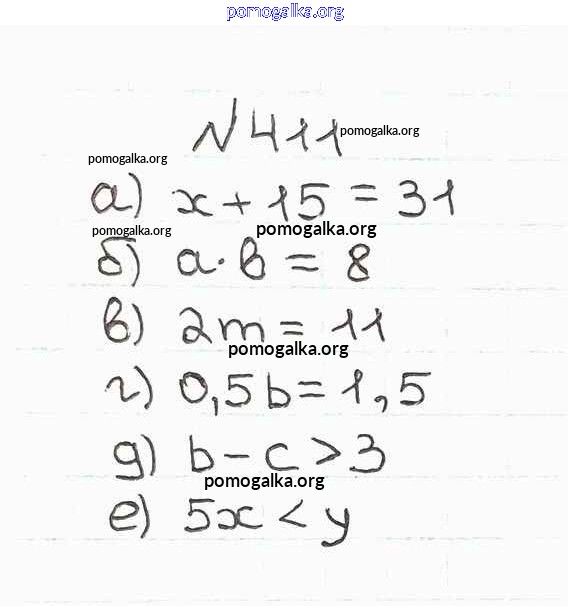 pomogalka.org
№411
pomogalka.org
pomogalka.org
а) x + 15 = 31
pomogalka.org
pomogalka.org
б) a · b = 8
в) 2m = 11
pomogalka.org
г) 0,5b = 1,5
д) b - c > 3
pomogalka.org
е) 5x < y